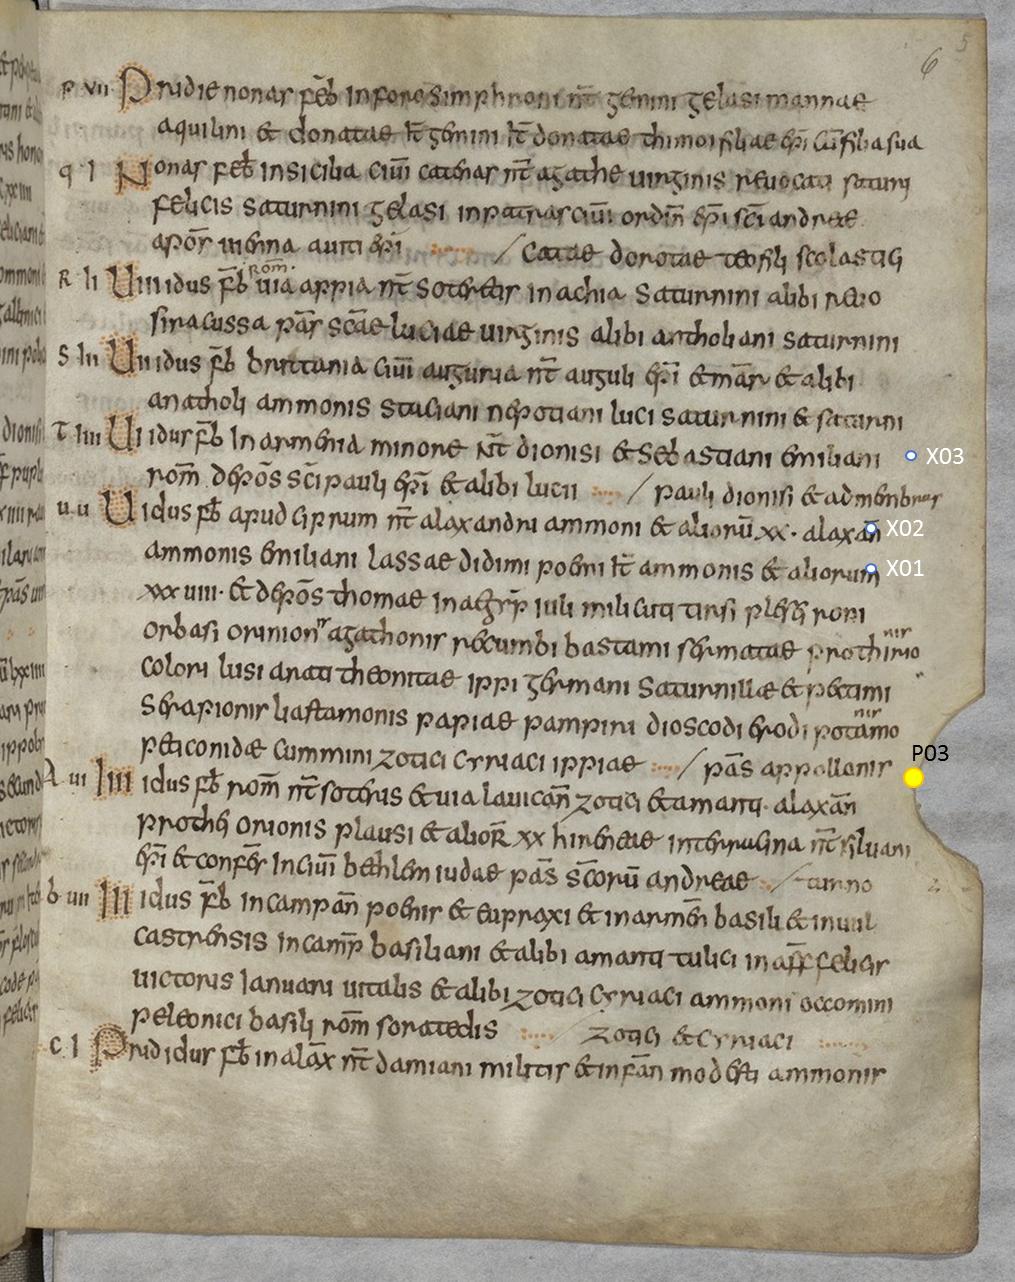 6 5
p vii Pridie nonas feƀ In foro Simphroni nt̄ gemini gelasi mannae
aquilini & donatae it̄ gemini it̄ donatae thimoi filiae ep̄i cū filia sua
q i Nonas feƀ In sicilia ciūi cathas nt̄ agathe uirginis reuocata saturi
felicis saturnini gelasi In patras ciūi ordin̄ ep̄i sc̄i andreae
apōr ep̄i / Catae donatae teofili scolastici
rom̄
R iii Uiii idus feƀ uia appia nt̄ Soteris In achia Saturnini alibi
siracussa pas̄ scāe luciae uirginis alibi antholiani saturnini
S iii Uii idus feƀ brittania ciūi auguria nt̄ auguli ep̄i & mār & alibi
anatholi ammonis staciani nepotiani luci saturnini & saturni
T iiii Ui idus feƀ In armenia minore nt̄ dionisi & Sebastiani emiliani
X03
rom̄ depōs sc̄i pauli ep̄i & alibi lucii / pauli dionisi & ad membrus
u u U idus feƀ apud ciprum nt̄ alaxandri ammoni & aliorū xx · alaxan̄
X02
ammonis emiliani lassae didimi poemi it̄ ammonis & aliorum
X01
xxuiii · & depōs thomae In aegyp̄ iuli
orbasi orinion agathonis recumbi bastami sermatae prothimo
nis
colori lusi theonitae ippi germani Saturnillae & petimi
Serapionis liastamonis papiae pampini dioscodi erodi potamo
nis
peticonidae cummini zotici cyriaci ippiae / pas̄ appollonis
P03
A ui IIII idus feƀ rom̄ nt̄ soteris & uia lauican̄ zotici & amanti · alaxān
prothei orionis plausi & alior̄ xx hireneae interuallina nt̄ siluani
ep̄i & confes̄ In ciūi bethlem iudae pas̄ sc̄orū andreae
b uii III idus feƀ In campan̄ poenis & eupraxi & In armen̄ basili &
castrensis In camp̄ basiliani & alibi amanti tulici In aff̄ felicis
uictoris Ianuari uitalis & alibi zotici cyriaci ammoni occomini
peleonici basili rom̄ soratedis zotici & cyriaci
c i Prid idus feƀ In alax̄ nt̄ damiani militis & Infān modesti ammonis